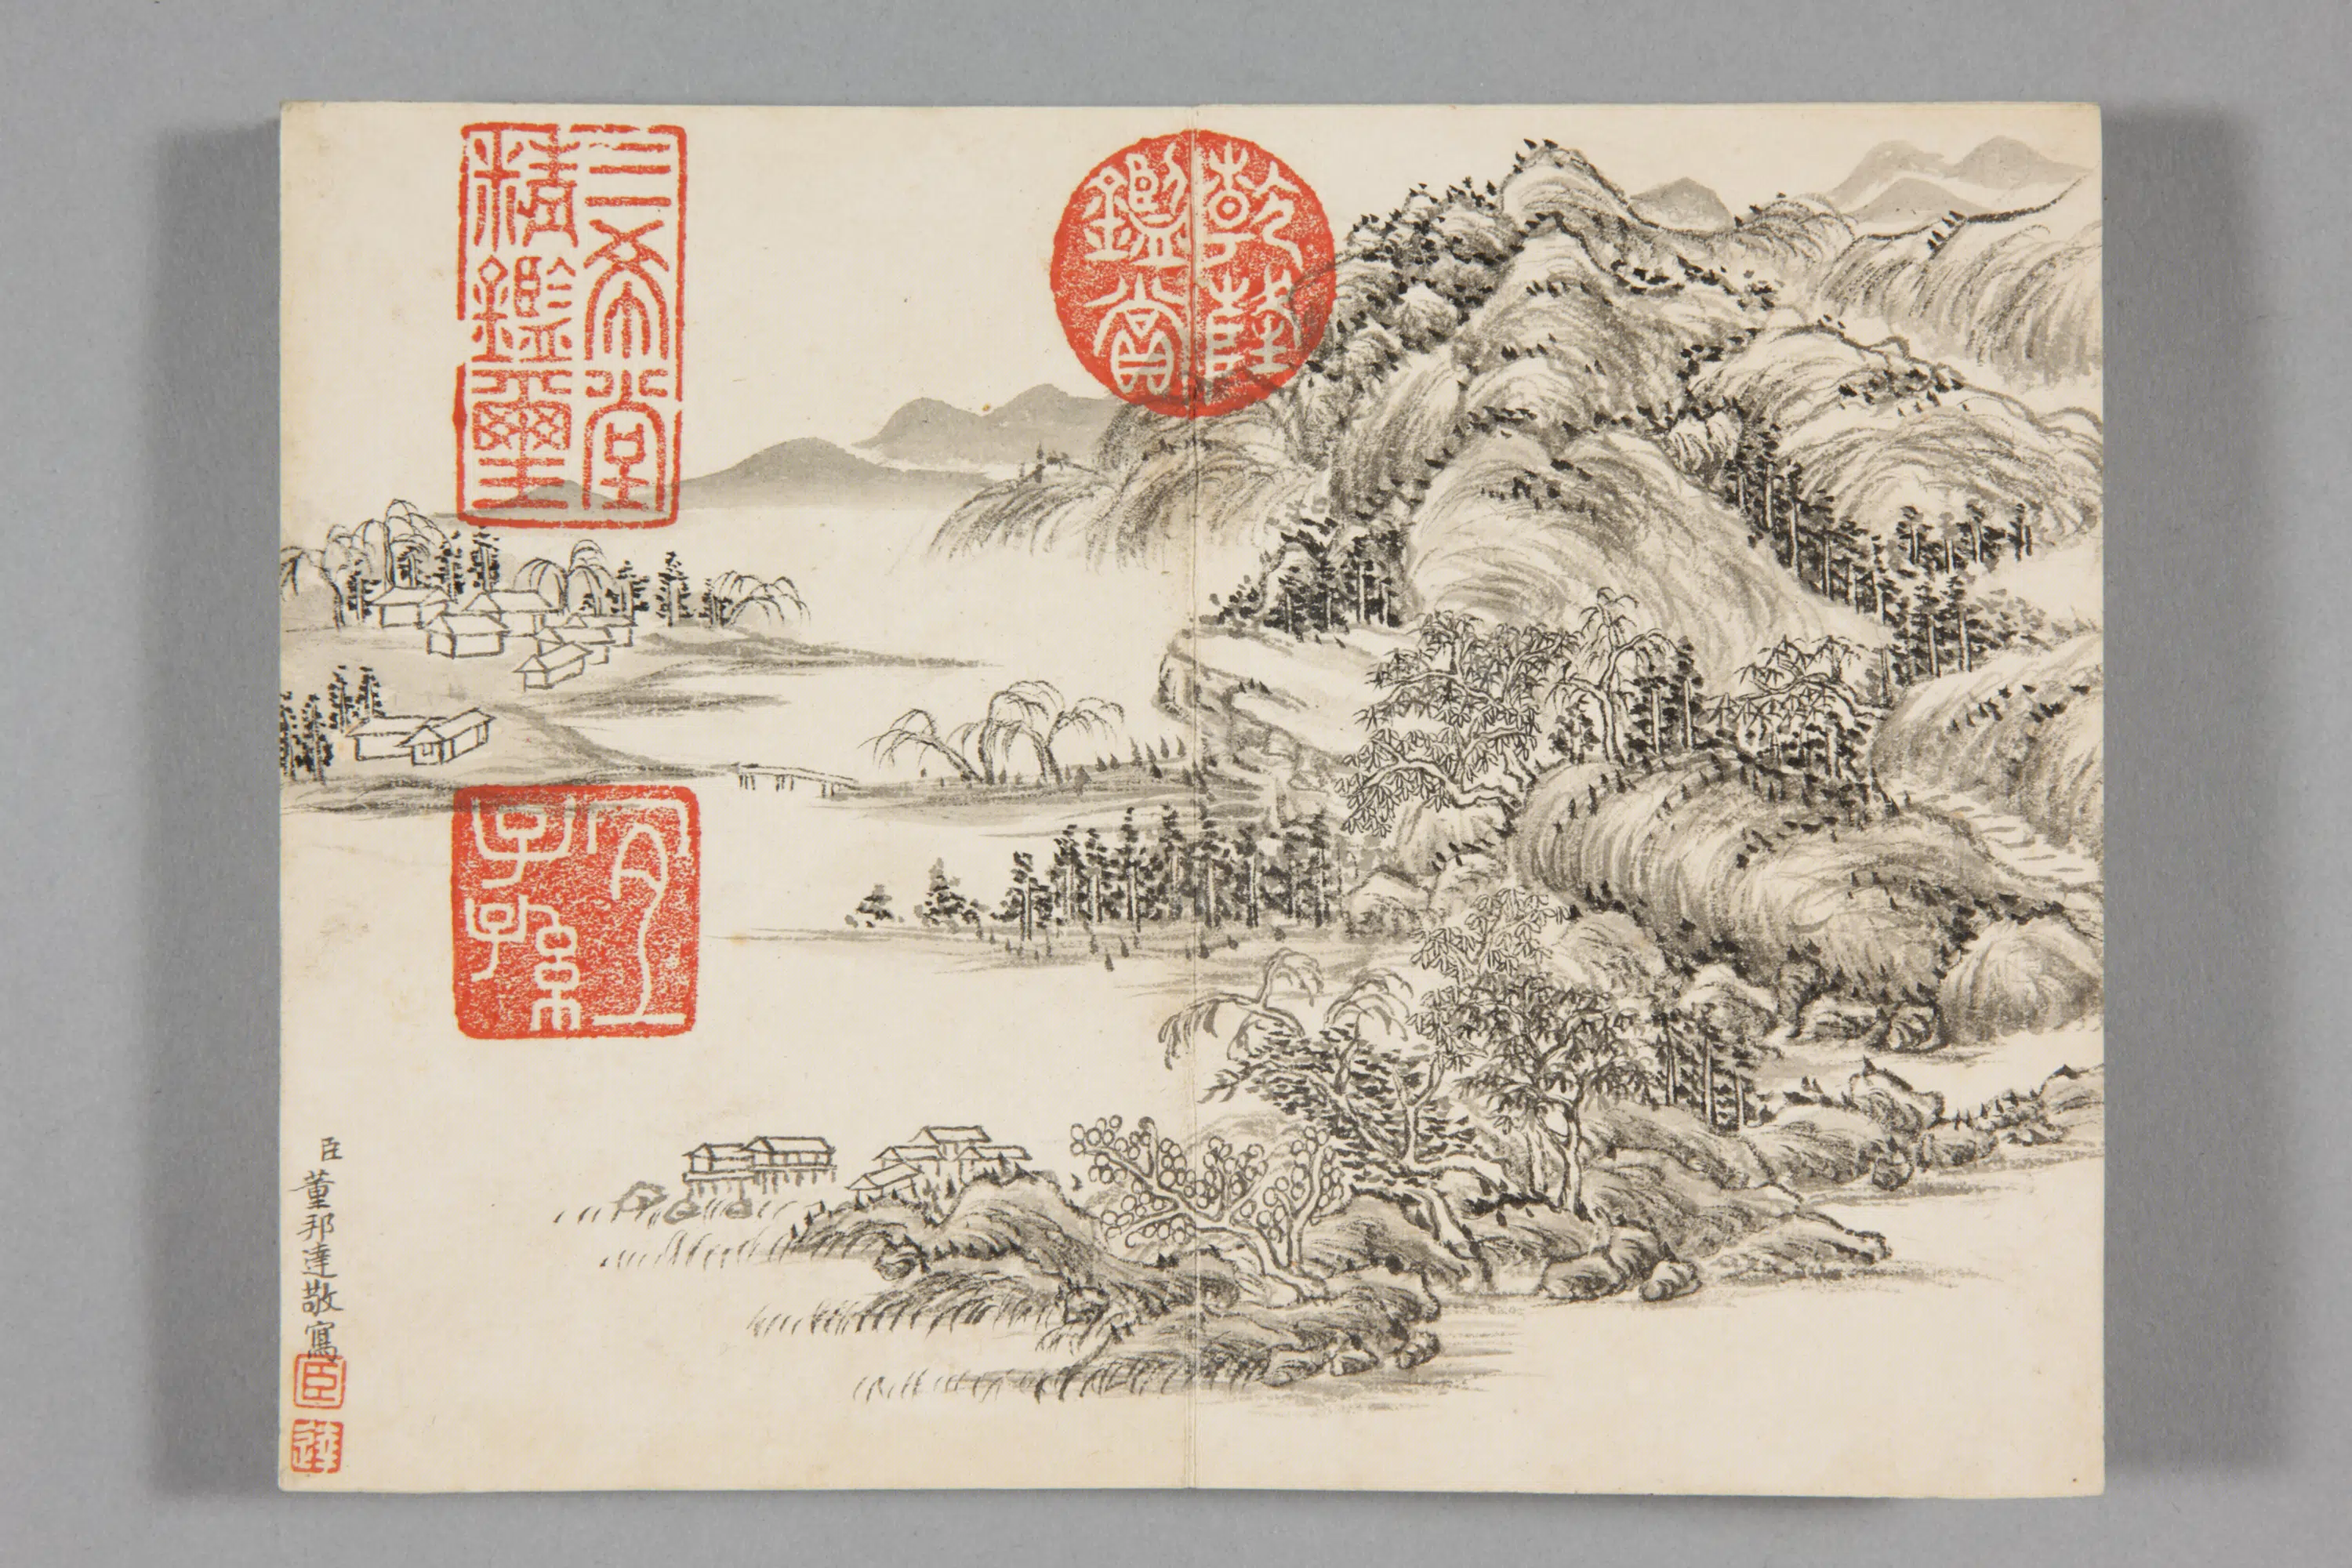 乾隆
鑑賞
三希堂
精鑑璽
宜
子孫
臣董邦達敬寫
臣
達